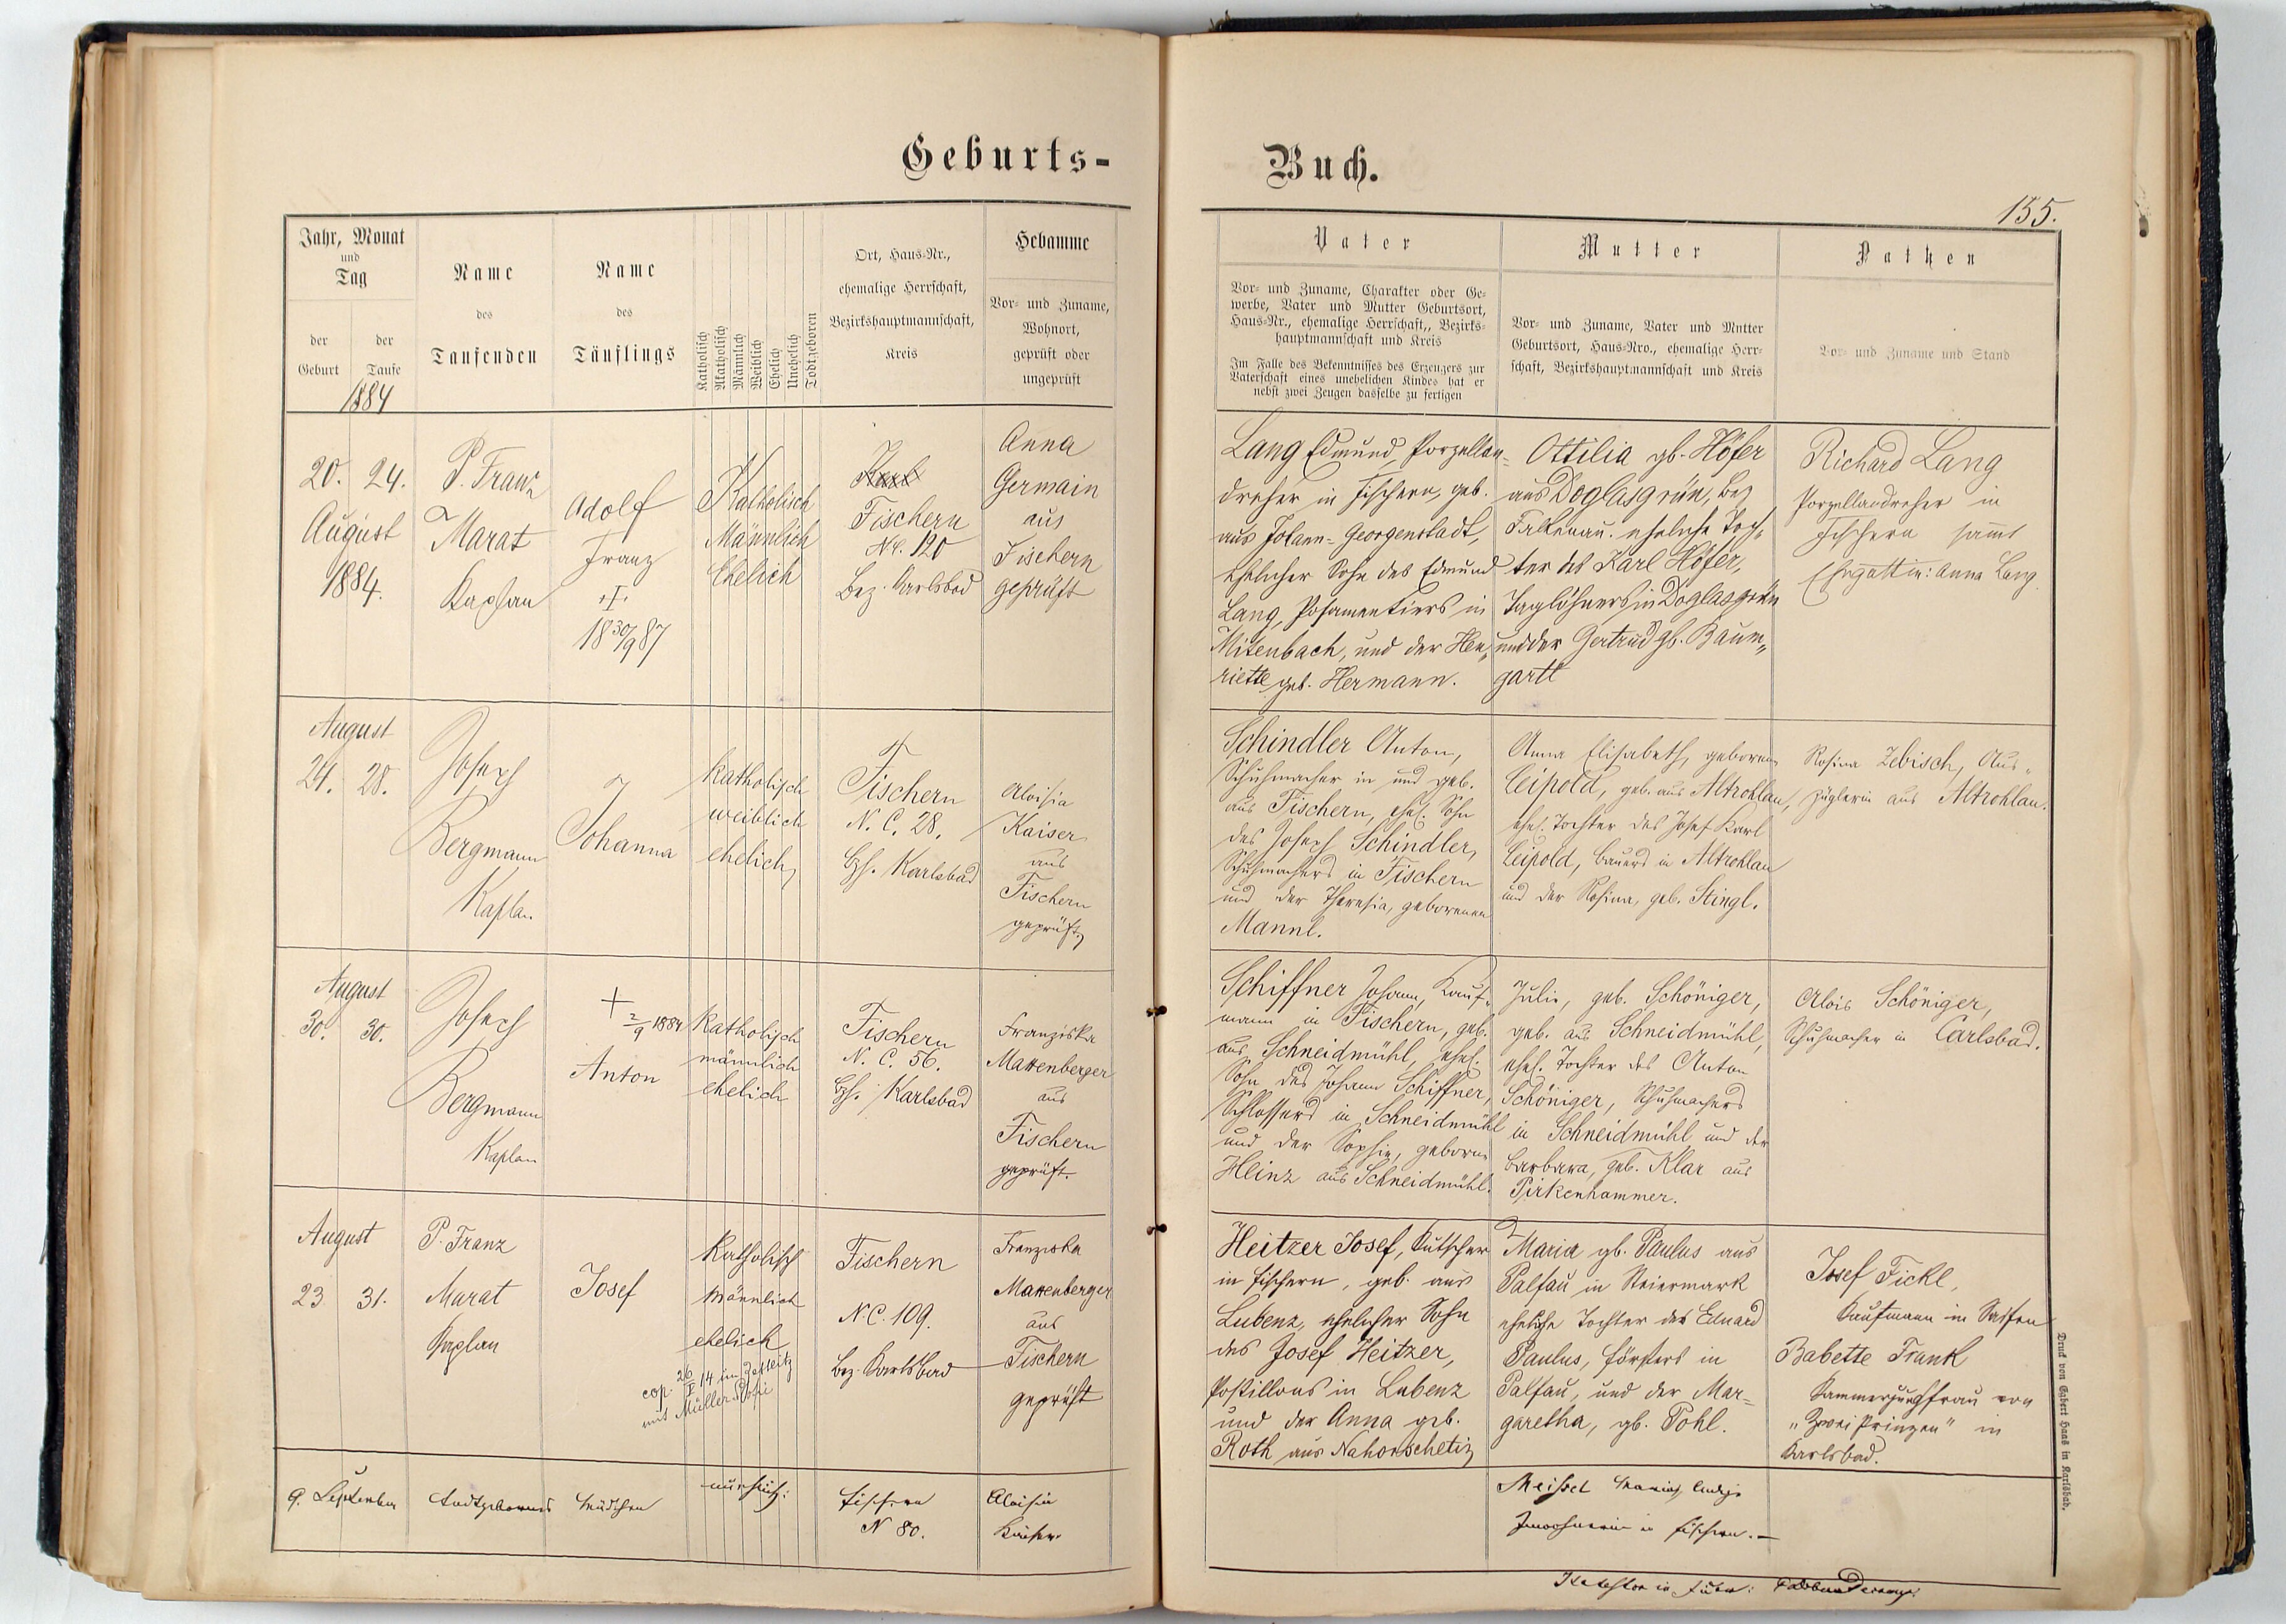 Geburts-
Jahr, Monat
und
Tag
der
Geburt
der
Taufe
1884
Name
des
Taufenden
Name
des
Täuflings
Katholisch
Akatholisch
Männlich
Weiblich
Ehelich
Unehelich
Todtgeboren
Ort, Haus-Nr.,
ehemalige Herrschaft,
Bezirkshauptmannschaft,
Kreis
Hebamme
Vor- und Zuname,
Wohnort,
geprüft oder
ungeprüft
20. 24.
August
1884.
P. Franz
Marat
Kaplan
Adolf
Franz
†
18 30/9 87
Katholisch
Männlich
Ehelich
Fischern
Nc. 120
Bez. Karlsbad
Anna
Germain
aus
Fischern
geprüft
August
24. 28.
Josef
Bergmann
Kaplan
Johanna
katholisch
weiblich
ehelich
Fischern
N. C. 28.
Bzh. Karlsbad
Aloisia
Kaiser
aus
Fischern
geprüft
August
30. 30.
Josef
Bergmann
Kaplan
† 2/9 1884
Anton
katholisch
männlich
ehelich
Fischern
N. C. 56.
Bzh. Karlsbad
Franziska
Mattenberger
aus
Fischern
geprüft.
August
23 31.
P. Franz
Marat
Kaplan
Josef
Katholisch
Männlich
ehelich
cop. 26/I 14 in
mit Müller
Fischern
N.C. 109.
Bez. Karlsbad
Franziska
Mattenberger
aus
Fischern
geprüft
9. September
todtgeborenes
Mädchen
Fischern
N 80.
Aloisia
Kaiser
Buch.
155.
Vater
Vor- und Zuname, Charakter oder Ge-
werbe, Vater und Mutter Geburtsort,
Haus-Nr., ehemalige Herrschaft,, Bezirks-
hauptmannschaft und Kreis
Im Falle des Bekenntnisses des Erzeugers zur
Vaterschaft eines unehelichen Kindes hat er
nebst zwei Zeugen dasselbe zu fertigen
Mutter
Vor- und Zuname, Vater und Mutter
Geburtsort, Haus-Nro., ehemalige Herr-
schaft, Bezirkshauptmannschaft und Kreis
Pathen
Vor- und Zuname und Stand
Lang Edmund, Porzellan-
dreher in Fischern, geb.
aus Johann-Georgenstadt,
ehelicher Sohn des Edmund
Lang, Posamentiers in
Mitenbach, und der Hen-
riette geb. Hermann.
Ottilia gb. Höfer
aus Doglasgrün, Bez
Falkenau. eheliche Toch-
ter des Karl Höfer,
Taglöhners in Doglasgrün
und der Gertrud gb. Baum-
gartl
Richard Lang
Porzellandreher in
Fischern samt
Ehegattin: Anna Lang
Schindler Anton,
Schuhmacher in und geb.
aus Fischern, ehel. Sohn
des Josef Schindler,
Schuhmachers in Fischern
und der Theresia, geborenen
Mannl.
Anna Elisabeth, geborene
Leipold, geb. aus Altrohlau,
ehel. Tochter des Josef Karl
Leipold, Bauers in Altrohlau
und der Rosina, geb. Stingl.
Rosina Zebisch, Aus-
züglerin aus Altrohlau.
Schiffner Johann, Kauf-
mann in Fischern, geb.
aus Schneidmühl, ehel.
Sohn des Johann Schiffner,
Schlossers in Schneidmühl
und der Sophie, geborne
Heinz aus Schneidmühl.
Julie, geb. Schöniger,
geb. aus Schneidmühl,
ehel. Tochter des Anton
Schöniger, Schuhmachers
in Schneidmühl und der
Barbara, geb. Klar aus
Pirkenhammer.
Alois Schöniger,
Schuhmacher in Carlsbad.
Heitzer Josef, Kutscher
in Fischern, geb. aus
Lubenz, ehelicher Sohn
des Josef Heitzer,
Postillons in Lubenz
und der Anna geb.
Roth aus Nahorschetitz
Maria gb. Paulus aus
Palfau in Steiermark
eheliche Tochter des Eduard
Paulus, Försters in
Palfau, und der Mar-
garetha, gb. Pohl.
Josef Fickl,
Kaufmann in
Babette Frank
Kammerjungfrau von
"Zwei Prinzen" in
Karlsbad.
Meissel Maria, ledige
Inwohnerin in Fischern.
Druck von Egbert Haas in Karlsbad.